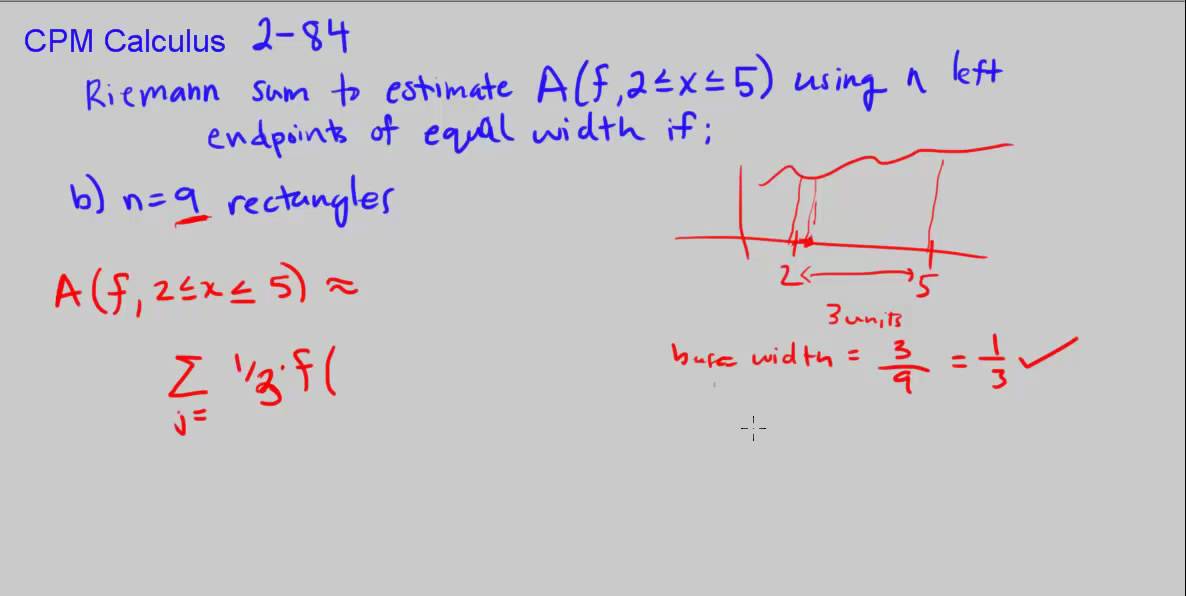 CPM Calculus 2-84
Riemann sum to estimate A(f, 2≤x≤5) using n left
endpoints of equal width if;
b) n=9 rectangles
A(f, 2≤x≤5) ≈
2 5
3 units
base width = 3/9 = 1/3 ✓
∑ j= 1/3·f(